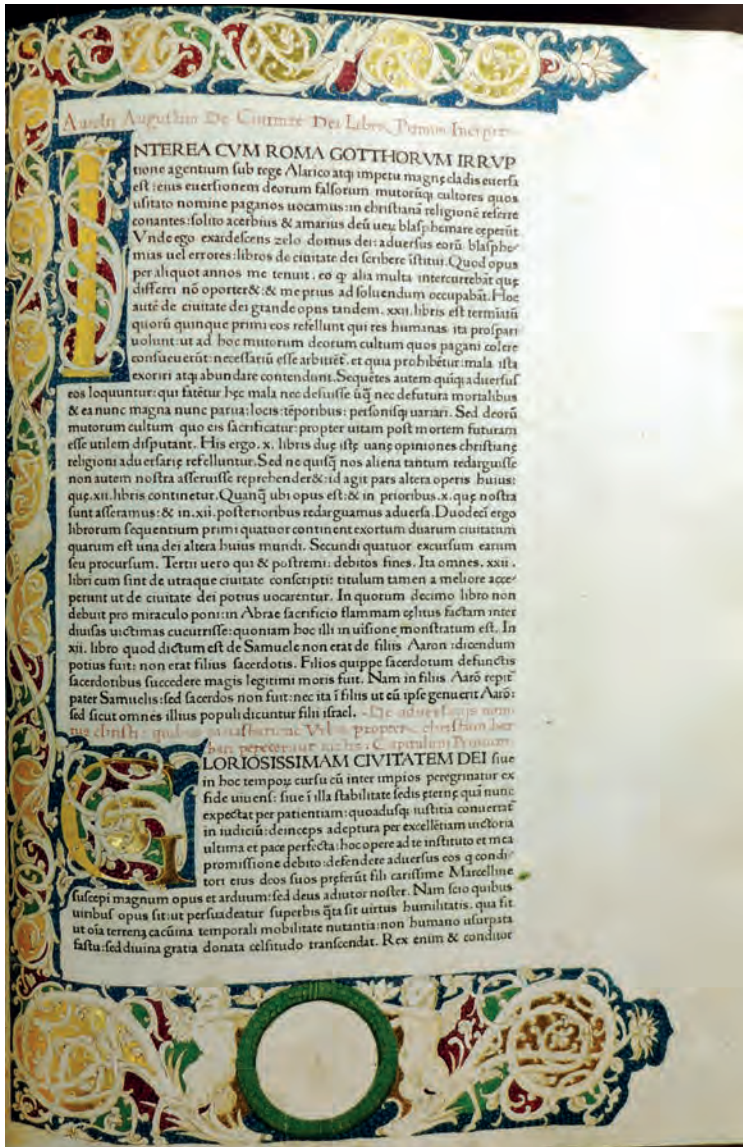 Aurelii Augustini De Ciuitate Dei Liber Primus Incipit
INTEREA CVM ROMA GOTTHORVM IRRVP
tione agentium sub rege Alarico atq; impetu magnę cladis euersa
est: eius euersionem deorum falsorum mutorūq; cultores quos
usitato nomine paganos uocamus: in christianā religionē referre
conantes: solito acerbius & amarius deū ueꝝ blasphemare ceperūt
Vnde ego exardescens zelo domus dei: aduersus eorū blasphe-
mias uel errores: libros de ciuitate dei scribere īstitui. Quod opus
per aliquot annos me tenuit. eo ꝙ alia multa intercurrebāt quę
differri nō oporter&: & me prius ad soluendum occupabāt. Hoc
autē de ciuitate dei grande opus tandem. xxii. libris est termiatū
quorū quinque primi eos refellunt qui res humanas ita prospari
uolunt: ut ad hoc mutorum deorum cultum quos pagani colere
consueuerūt: necessariū esse arbitrēt. et quia prohibētur: mala ista
exoriri atq; abundare contendunt. Sequētes autem quīq; aduersus
eos loquuntur: qui fatētur hęc mala nec defuisse ūq̄ nec defutura mortalibus
& ea nunc magna nunc parua: locis: tēporibus: personisq; uariari. Sed deorū
mutorum cultum quo eis sacrificatur: propter uitam post mortem futuram
esse utilem disputant. His ergo. x. libris duę istę uanę opiniones christianę
religioni aduersarię refelluntur. Sed ne quisq̄ nos aliena tantum redarguisse
non autem nostra asseruisse reprehender&: id agit pars altera operis huius:
quę. xii. libris continetur. Quanq̄ ubi opus est: & in prioribus. x. quę nostra
sunt asseramus: & in. xii. posterioribus redarguamus aduersa. Duodecī ergo
librorum sequentium primi quatuor continent exortum duarum ciuitatum
quarum est una dei altera huius mundi. Secundi quatuor excursum earum
seu procursum. Tertii uero qui & postremi: debitos fines. Ita omnes. xxii.
libri cum sint de utraque ciuitate conscripti: titulum tamen a meliore acce-
perunt ut de ciuitate dei potius uocarentur. In quorum decimo libro non
debuit pro miraculo poni: in Abrae sacrificio flammam cęlitus factam inter
diuisas uictimas cucurrisse: quoniam hoc illi in uisione monstratum est. In
xii. libro quod dictum est de Samuele non erat de filiis Aaron: dicendum
potius fuit: non erat filius sacerdotis. Filios quippe sacerdotum defunctis
sacerdotibus succedere magis legitimi moris fuit. Nam in filiis Aarō repit
pater Samuelis: sed sacerdos non fuit: nec ita ī filiis ut eū ipse genuerit Aarō:
sed sicut omnes illius populi dicuntur filii israel. De aduersariis nomi
nis christi: quibus in uastatione Vrbis propter christum bar
bari pepercerunt Capitulum Primum.
GLORIOSISSIMAM CIVITATEM DEI siue
in hoc tempoꝝ cursu cū inter impios peregrinatur ex
fide uiuens: siue ī illa stabilitate sedis ęternę quā nunc
expectat per patientiam: quoadusq; iustitia conuertat
in iudiciū: deinceps adeptura per excellētiam uictoria
ultima et pace perfecta: hoc opere ad te instituto et mea
promissione debito: defendere aduersus eos q condi-
tori eius deos suos pręferūt fili carissime Marcelline
suscepi magnum opus et arduum: sed deus adiutor noster. Nam scio quibus
uiribus opus sit: ut persuadeatur superbis q̄ta sit uirtus humilitatis. qua fit
ut oīa terrena cacūina temporali mobilitate nutantia: non humano usurpata
fastu: sed diuina gratia donata celsitudo transcendat. Rex enim & conditor